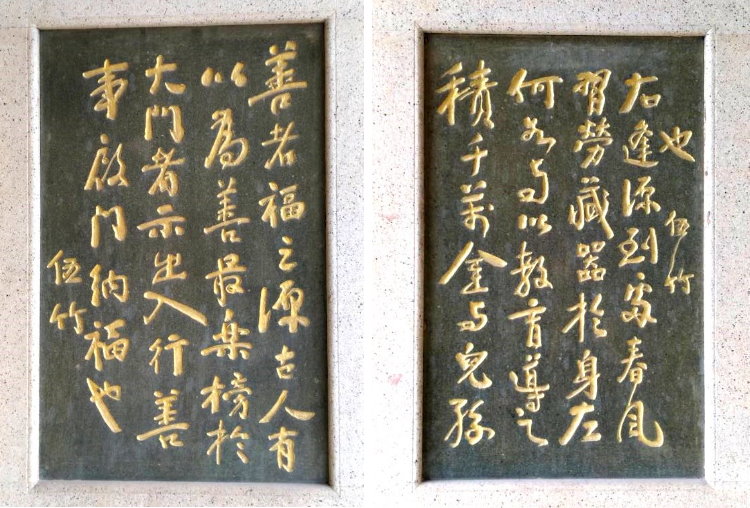 善者福之源古人有
以為善最樂榜於
大門者示出入行善
事啟門納福也
伍竹
積千萬金与兒孫
何若与以教育導之
習勞藏器於身左
右逢源到處春風
也
伍竹